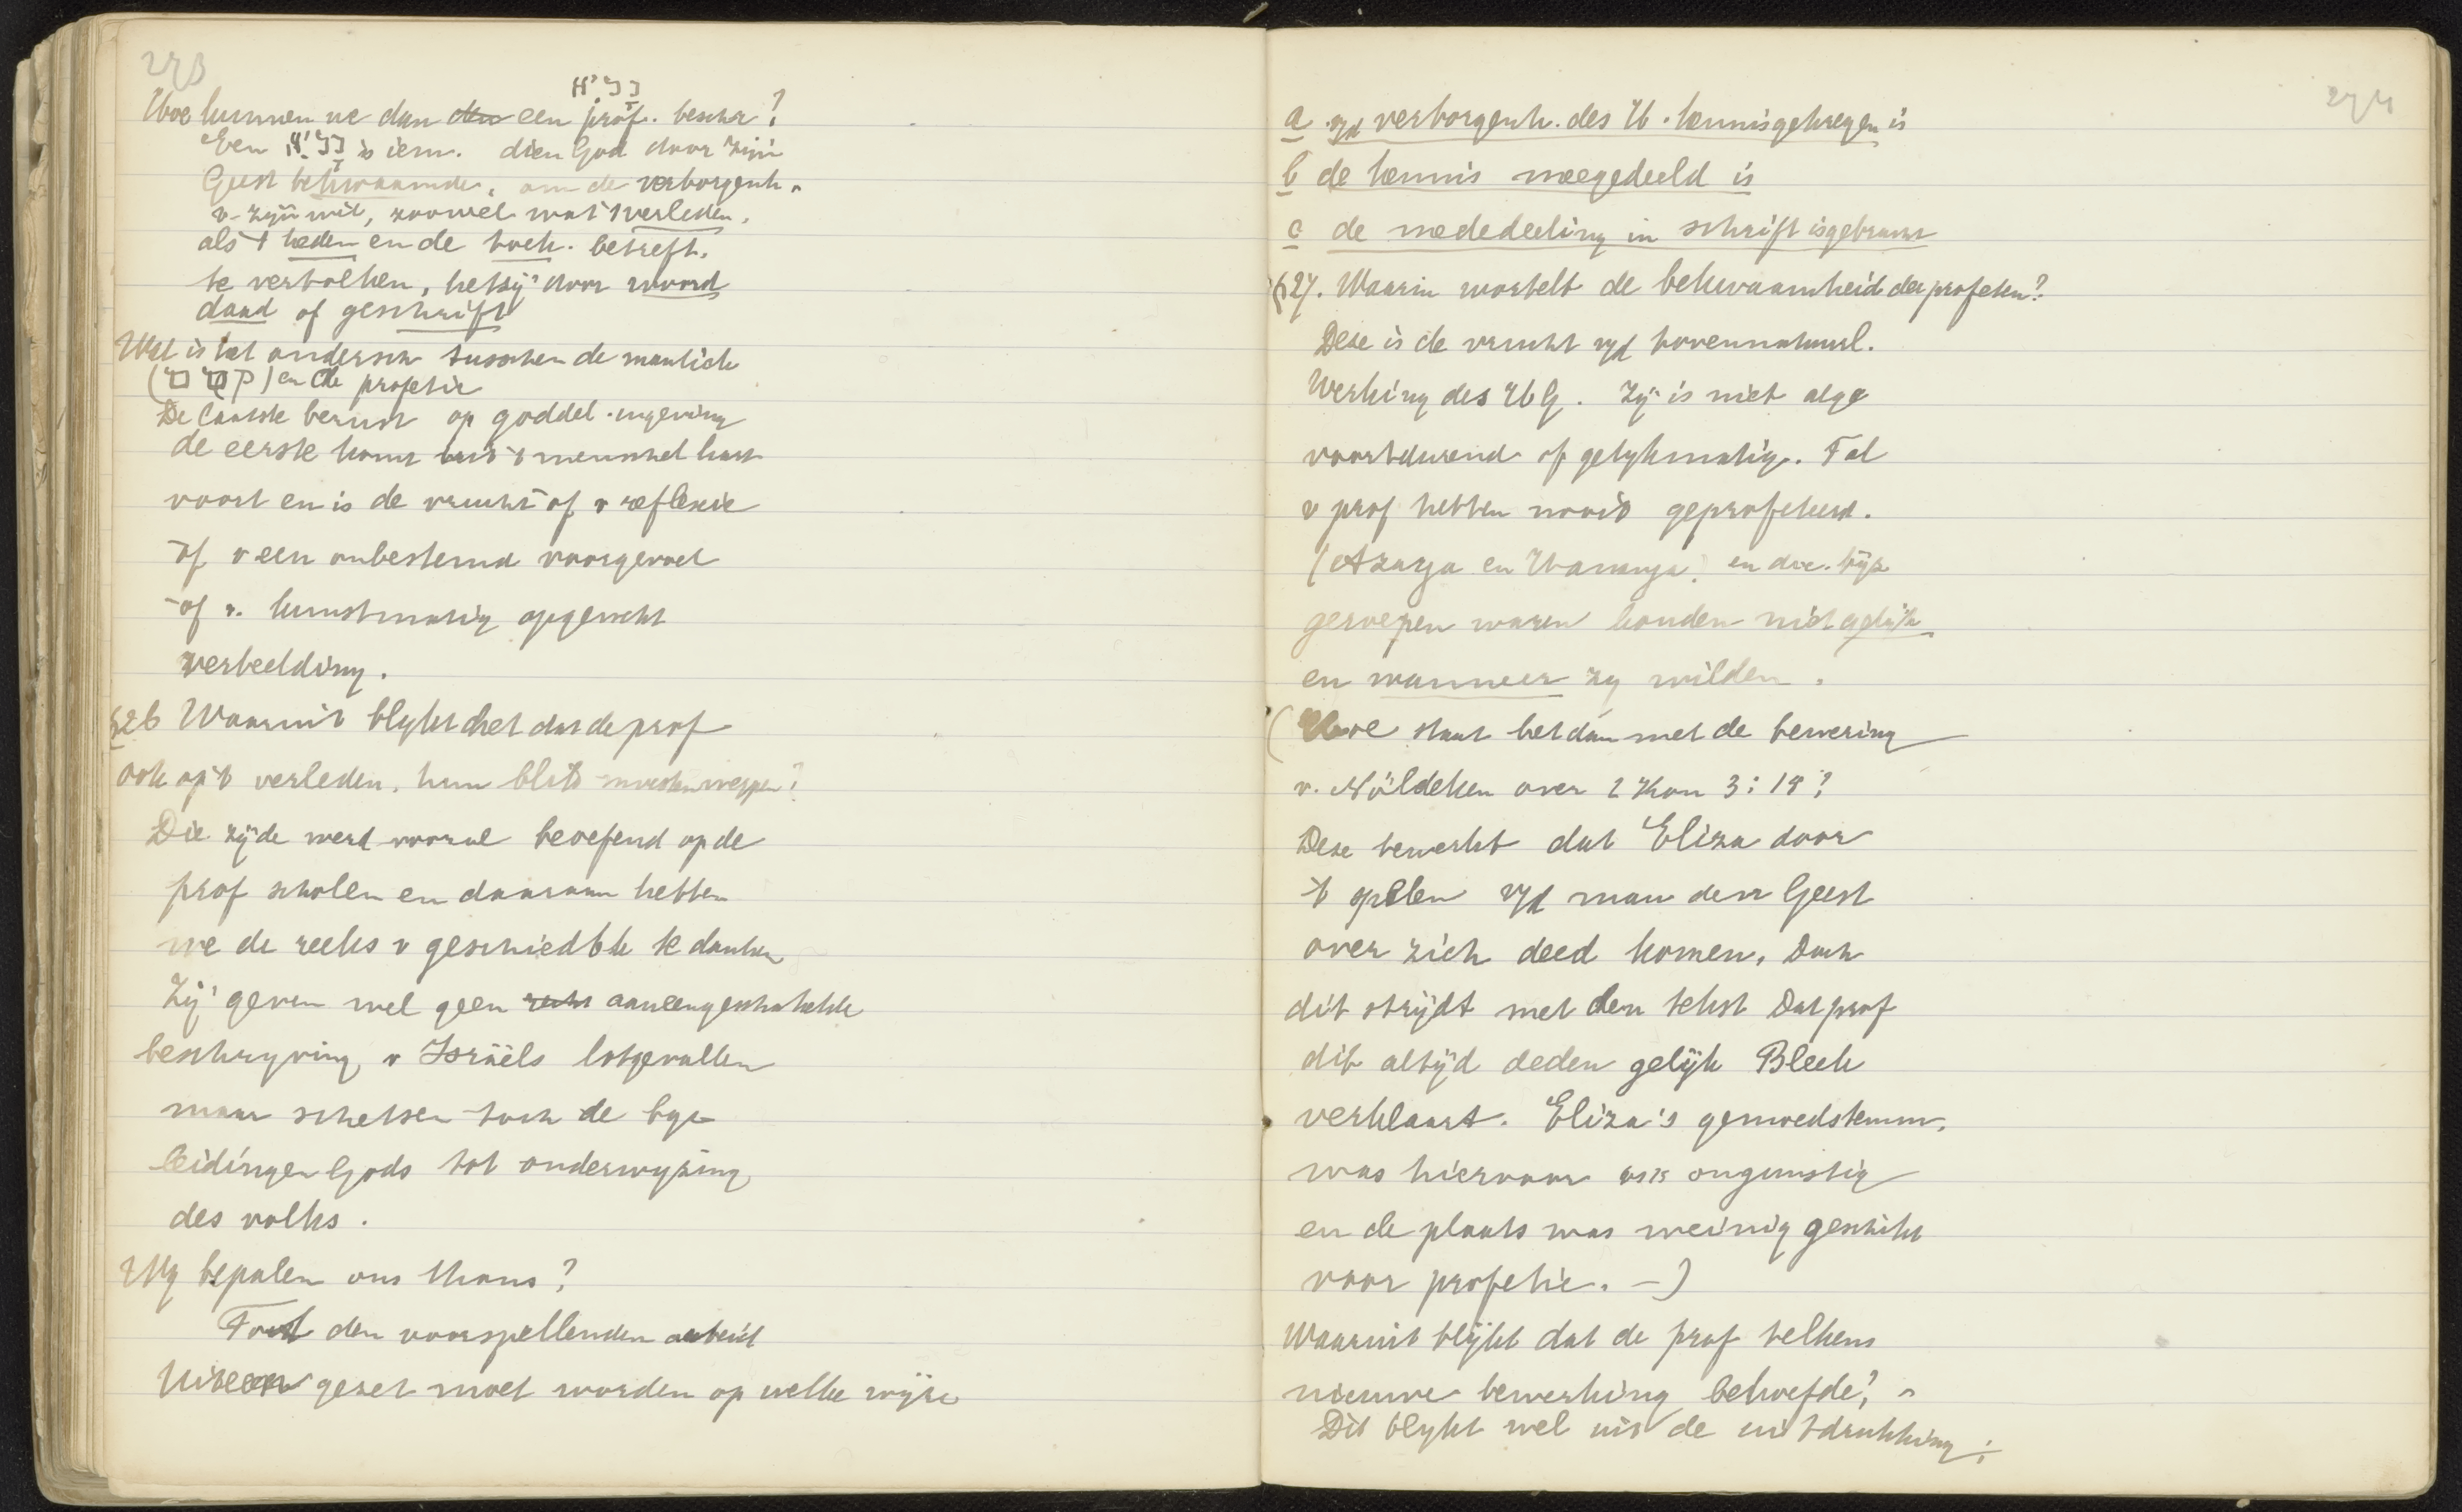 273
נביא
Hoe kunnen we dan een prof. beschr?
Een נביא is iem. dien God door zijn
Geest bekwaamde, om de verborgenh.
v. zijn wil, zoowel wat 't verleden,
als 't heden en de toek. betreft,
te vertolken, hetzij door woord
daad of geschrift
Wat is het ondersch tusschen de mantiek
(קסם) en de profetie
De laatste berust op goddel. ingeving
de eerste komt uit 't menschel hart
voort en is de vrucht of v reflexie
of v een onbestemd voorgevoel
of v. kunstmatig opgewekt
verbeelding.
§26 Waaruit blykt het dat de prof
ook op 't verleden, hun blik moesten werpen?
Die zijde werd vooral beoefend op de
prof scholen en daaraan hebben
we de reeks v geschiedbk te danken
Zij geven wel geen aaneengeschakelde
beschryving v Israëls lotgevallen
maar schetsen toch de byz
leidingen Gods tot onderwyzing
des volks.
Wy bepalen ons thans?
Tot den voorspellenden arbeid
Uiteen gezet moet worden op welke wijze
274
a v/d verborgenh. des H. kennis gekregen is
b de kennis meegedeeld is
c de mededeeling in schrift is gebracht
§27. Waarin wortelt de bekwaamheid der profeten?
Deze is de vrucht v/d bovennatuurl.
Werking des H G. Zij is niet alge
voortdurend of gelykmatig. Tal
v prof hebben nooit geprofeteerd.
(Azarja en Hananja, en die byz
geroepen waren konden niet altijd
en wanneer zy wilden.
(Hoe staat het dan met de bewering
v. Nöldeken over 2 Kon 3:15?
Deze bewerkt dat Eliza door
't spelen v/d man den Geest
over zich deed komen, Doch
dit strijdt met den tekst Dat prof
dit altijd deden gelijk Bleek
verklaart. Eliza's gemoedstemm.
was hiervoor ongunstig
en de plaats was weinig geschikt
voor profetie. -)
Waaruit blijkt dat de prof telkens
nieuwe bewerking behoefde?
Dit blykt wel uit de uitdrukking;